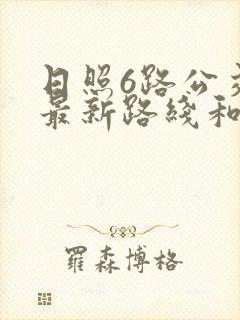 日照6路公交
最新路线和
羅森博格